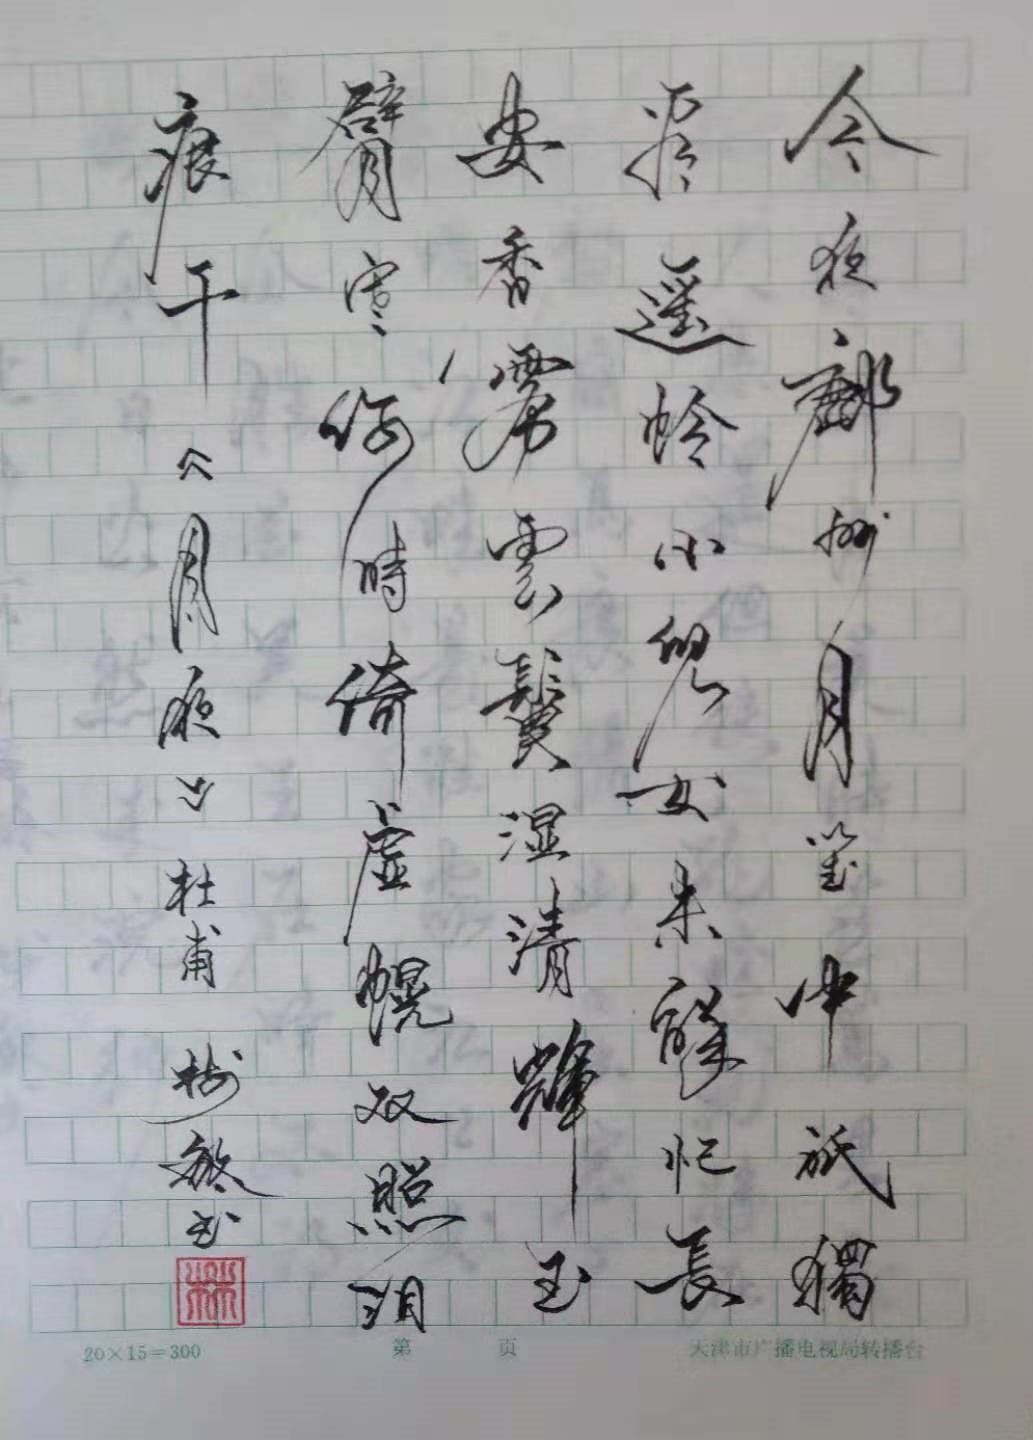 今夜鄜州月閨中祇獨
看遥怜小兒女未解忆長
安香雾雲鬟湿清輝玉
臂寒何時倚虚幌双照泪
痕干《月夜》杜甫 树繁书
20×15=300 第 页 天津市广播电视局转播台